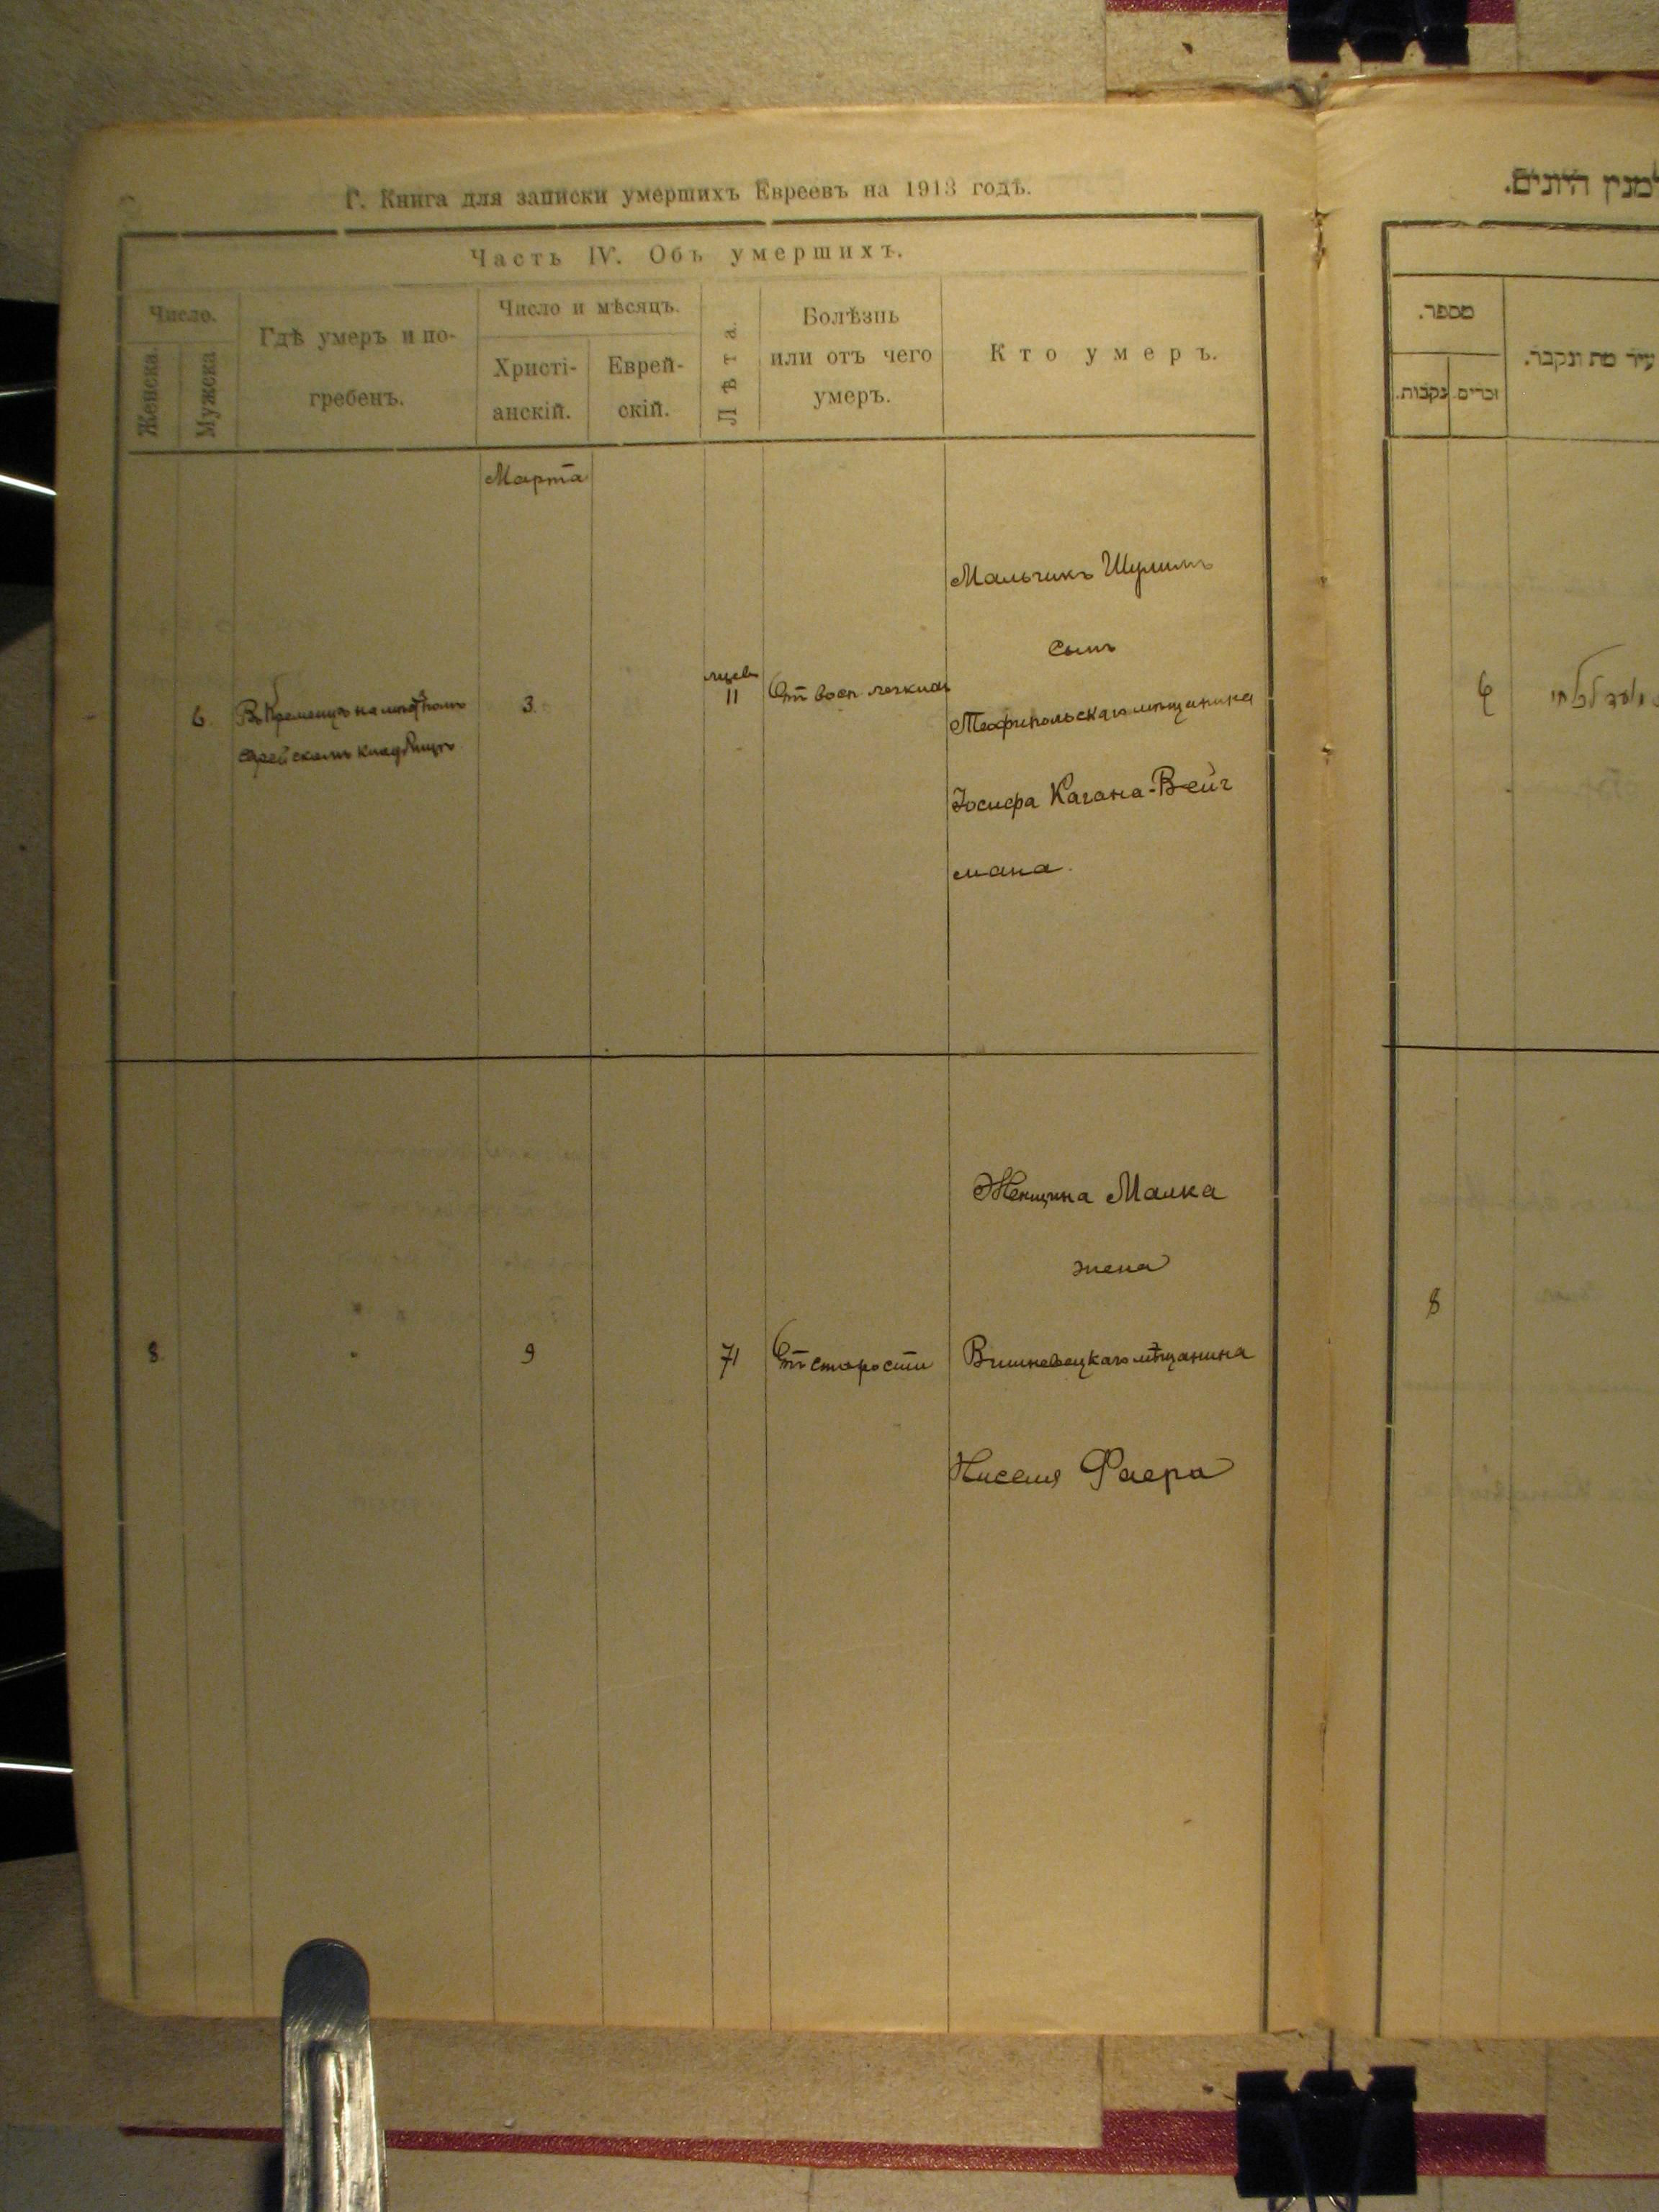 Г. Книга для записки умершихъ Евреевъ на 1913 годъ.
Часть IV. Объ умершихъ.
Число.
Женска.
Мужска
Гдѣ умеръ и по-
гребенъ.
Число и мѣсяцъ.
Христі-
анскій.
Еврей-
скій.
Лѣта.
Болѣзнь
или отъ чего
умеръ.
Кто умеръ.
Марта
Мальчикъ Шулимъ
сынъ
6. Въ Кременцѣ на мѣстномъ 3. мцев
еврейскомъ кладбищѣ 11 От восп. легкихъ
Теофипольскаго мѣщанина
Іосифа Кагана-Вейг
мана.
Женщина Малка
жена
8. 9 71 От старости Вишневецкаго мѣщанина
Ниселя Фаера
למנין היונים.
מספר.
זכרים. נקבות.
עיר מת ונקבר.
6
8